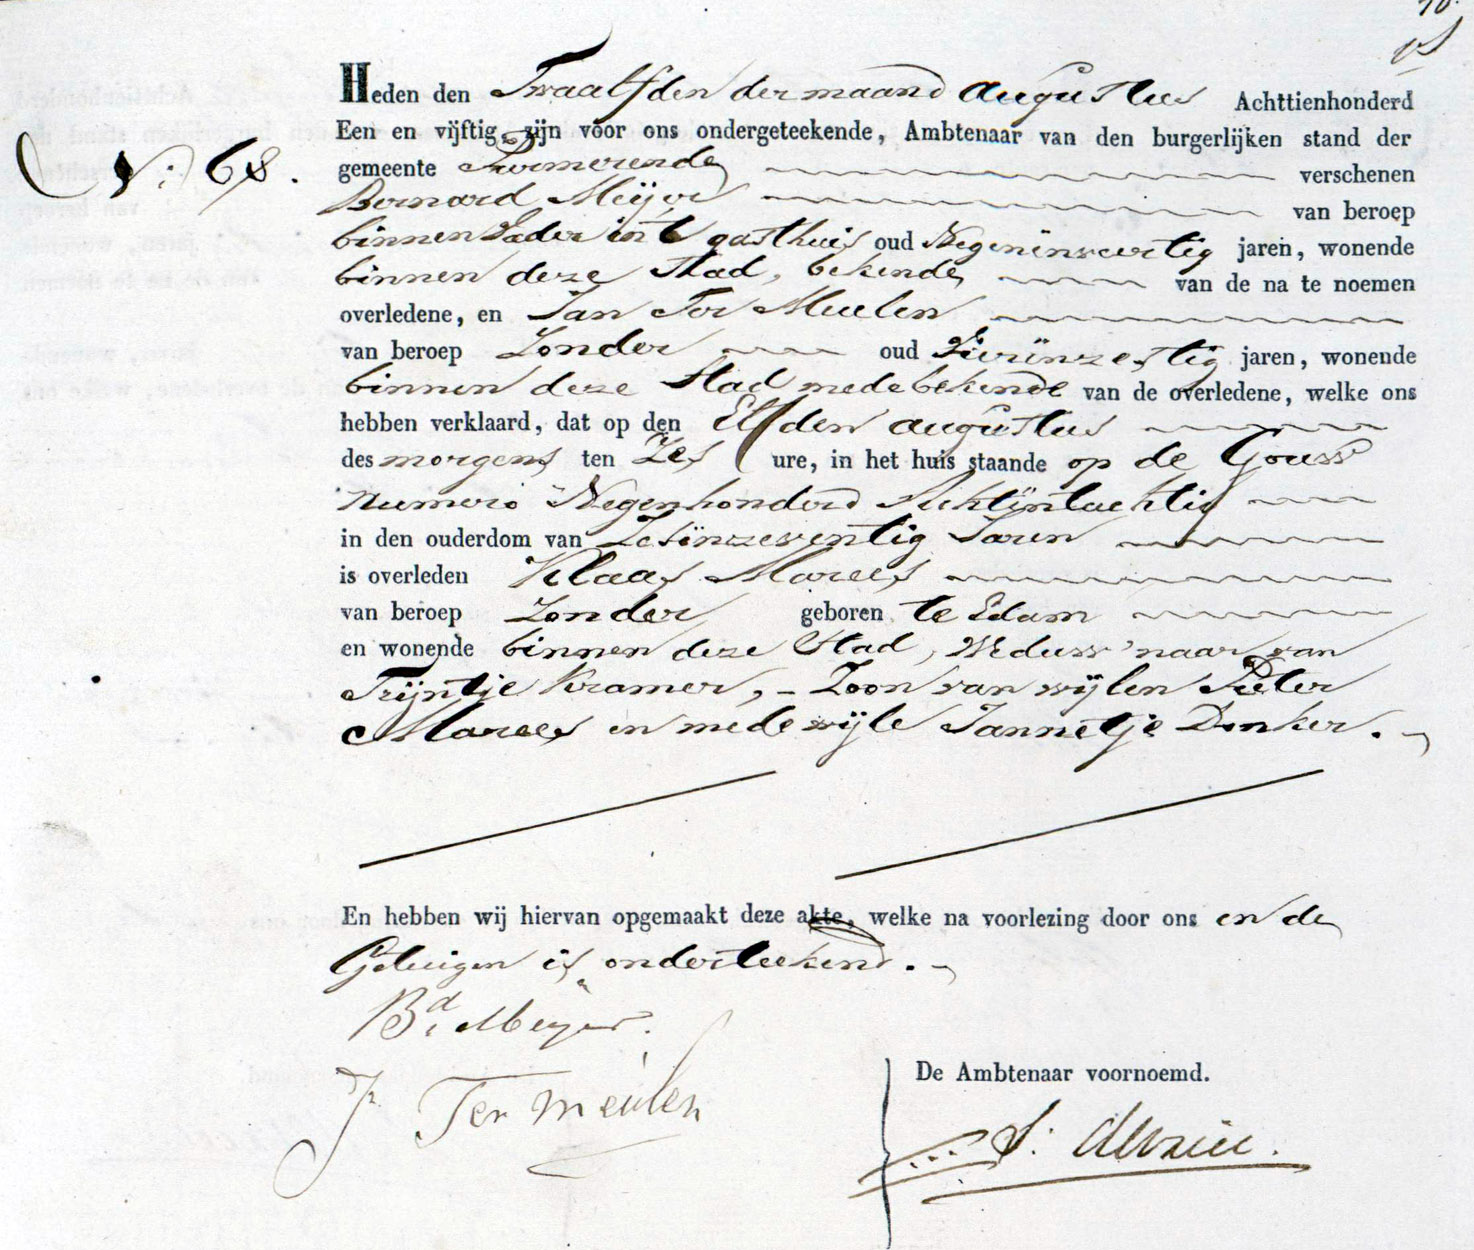 Heden den Twaalfden der maand Augustus Achttienhonderd
Een en vijftig, zijn voor ons ondergeteekende, Ambtenaar van den burgerlijken stand der
No. 68.
gemeente Purmerende verschenen
Bernard Meijer van beroep
binnen Vader in 't gasthuis oud Negenënveertig jaren, wonende
binnen deze stad, bekende van de na te noemen
overledene, en Jan Ter Meulen
van beroep Zonder oud Vierënzestig jaren, wonende
binnen deze Stad mede bekende van de overledene, welke ons
hebben verklaard, dat op den Elfden Augustus
des morgens ten Zes ure, in het huis staande op de Gouw
Numero Negenhonderd Achtëntachtig
in den ouderdom van Zesënzeventig Jaren
is overleden Klaas Marees
van beroep Zonder geboren te Edam
en wonende binnen deze Stad, Weduwnaar van
Trijntje Kramer, - Zoon van wijlen Pieter
Marees en mede wijle Jannetje Donker.
En hebben wij hiervan opgemaakt deze akte, welke na voorlezing door ons en de
Getuigen is onderteekend.
Bd. Meijer.
J. Ter Meulen
De Ambtenaar voornoemd.